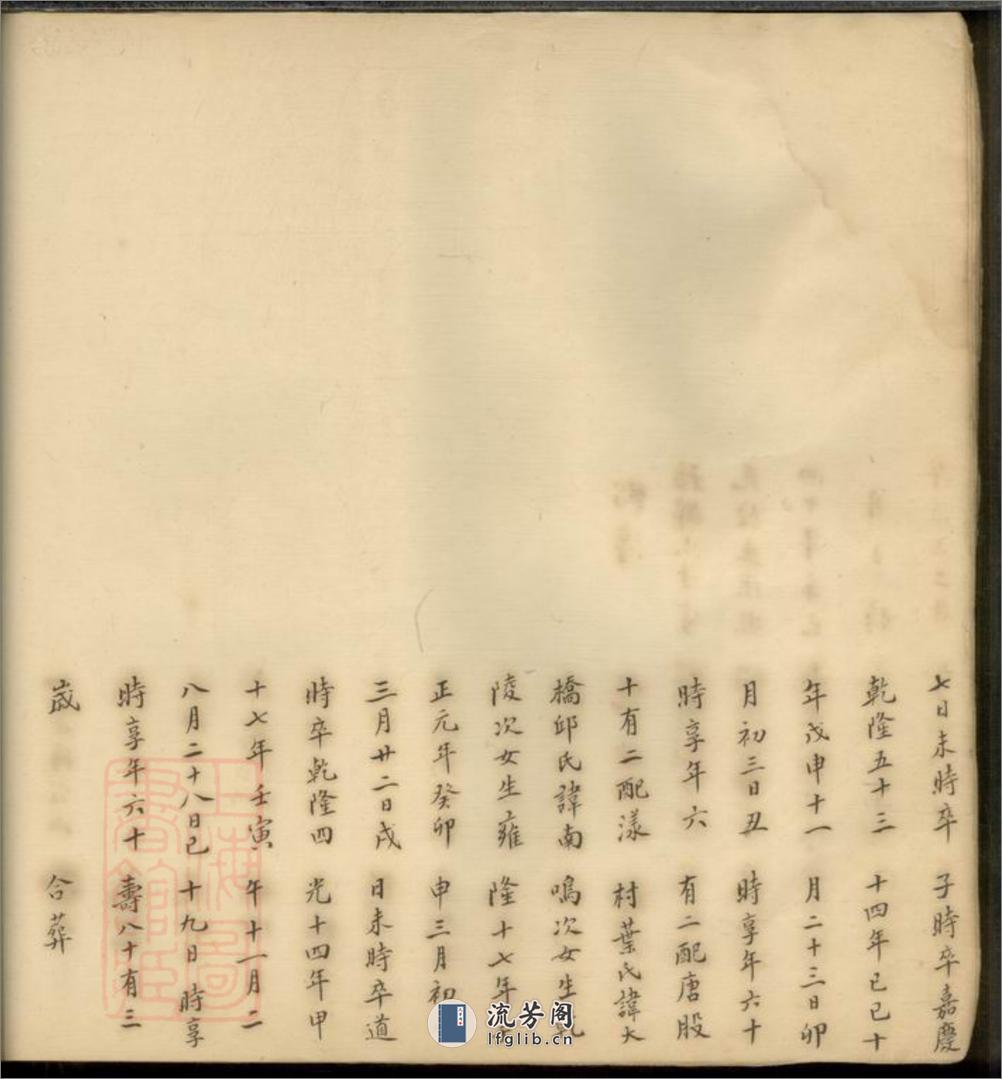 七日未時卒
乾隆五十三
年戊申十一
月初三日丑
時享年六
十有二配漾
橋邱氏諱南
陵次女生雍
正元年癸卯
三月廿二日戌
時卒乾隆四
十七年壬寅
八月二十八日巳
時享年六十
歲
子時卒嘉慶
十四年己巳十
月二十三日卯
時享年六十
有二配唐股
村葉氏諱大
鳴次女生乾
隆十七年
申三月初
日未時卒道
光十四年甲
午十一月二
十九日 時享
壽八十有三
合葬
上海圖書館藏
流芳阁
lfglib.cn